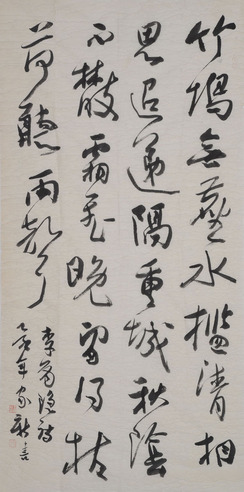 竹塢無塵水檻清相
思迢遞隔重城秋陰
不散霜飛晚留得枯
荷聽雨聲
李商隱詩
年